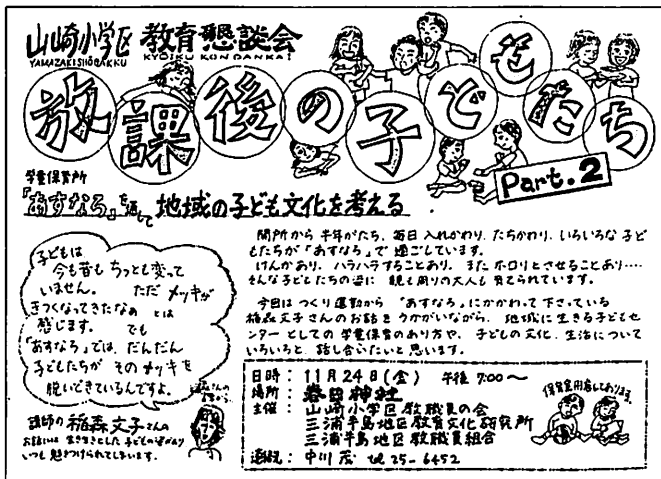 山崎小学区 教育懇談会
YAMAZAKISHŌGAKKU KYŌIKU KONDANKAI
放課後の子どもたち
Part.2
学童保育所
「あすなろ」を通して 地域の子ども文化を考える
子どもは
今も昔も ちっとも変って
いません。 ただ メッキが
きつくなってきたなぁ とは
感じます。 でも
「あすなろ」では、だんだん
子どもたちが そのメッキを
脱いできているんですよ。
稲森さんの
講師の 稲森文子さんの
お話には 生き生きとした 子どもの姿があり
いつも 魅きつけられてしまいます。
開所から 半年がたち、毎日 入れかわり、たちかわり、いろいろな 子ど
もたちが「あすなろ」で 過ごしています。
けんかあり、ハラハラすることあり、また ホロリとさせることあり……
そんな子どもたちの姿に 親も周りの大人も 育てられています。
今回は つくり運動から 「あすなろ」にかかわって 下さっている
稲森文子さんのお話を うかがいながら、地域に 生きる子どもセ
ンター としての 学童保育の あり方や、子どもの文化、生活について
いろいろと 話し合いたいと思います。
日時: 11月24日(金) 午後 7:00〜
場所: 春日神社
主催: 山崎小学区教職員の会
三浦半島地区教育文化研究所
三浦半島地区教職員組合
連絡: 中川 茂 tel 25-6452
保育室用意しております。